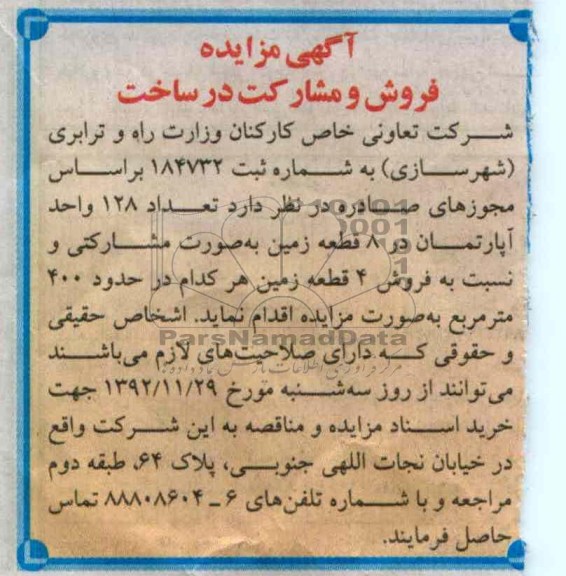 آگهی مزایده
فروش و مشارکت در ساخت
شرکت تعاونی خاص کارکنان وزارت راه و ترابری
(شهرسازی) به شماره ثبت ۱۸۴۷۳۲ براساس
مجوزهای صادره در نظر دارد تعداد ۱۲۸ واحد
آپارتمان در ۸ قطعه زمین به‌صورت مشارکتی و
نسبت به فروش ۴ قطعه زمین هر کدام در حدود ۴۰۰
مترمربع به‌صورت مزایده اقدام نماید. اشخاص حقیقی
ParsNamadData
و حقوقی که دارای صلاحیت‌های لازم می‌باشند
می‌توانند از روز سه‌شنبه مورخ ۱۳۹۲/۱۱/۲۹ جهت
خرید اسناد مزایده و مناقصه به این شرکت واقع
در خیابان نجات اللهی جنوبی، پلاک ۶۴، طبقه دوم
مراجعه و با شماره تلفن‌های ۶ ـ ۸۸۸۰۸۶۰۴ تماس
حاصل فرمایند.